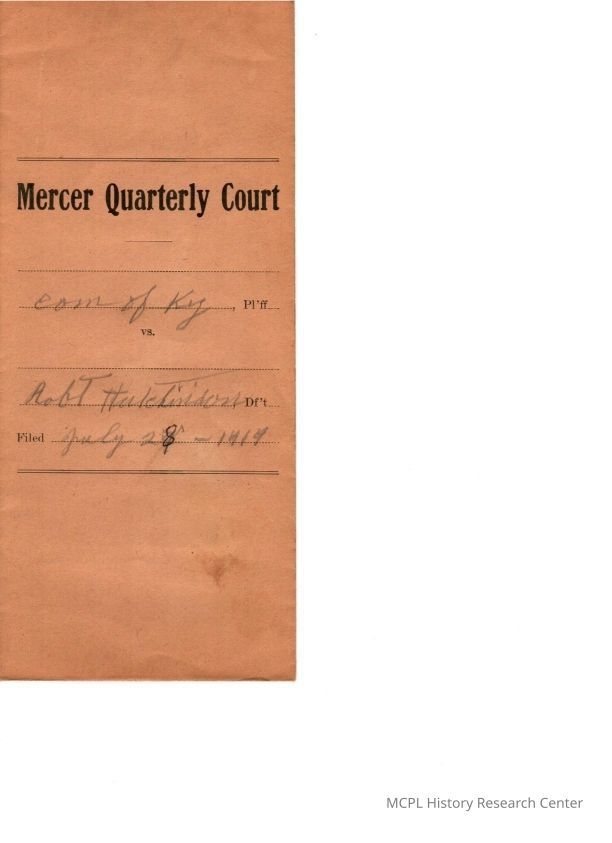 Mercer Quarterly Court
com of Ky, Pl'ff.
vs.
Robt Hutchinson, Df't
Filed July 28 - 1919
MCPL History Research Center